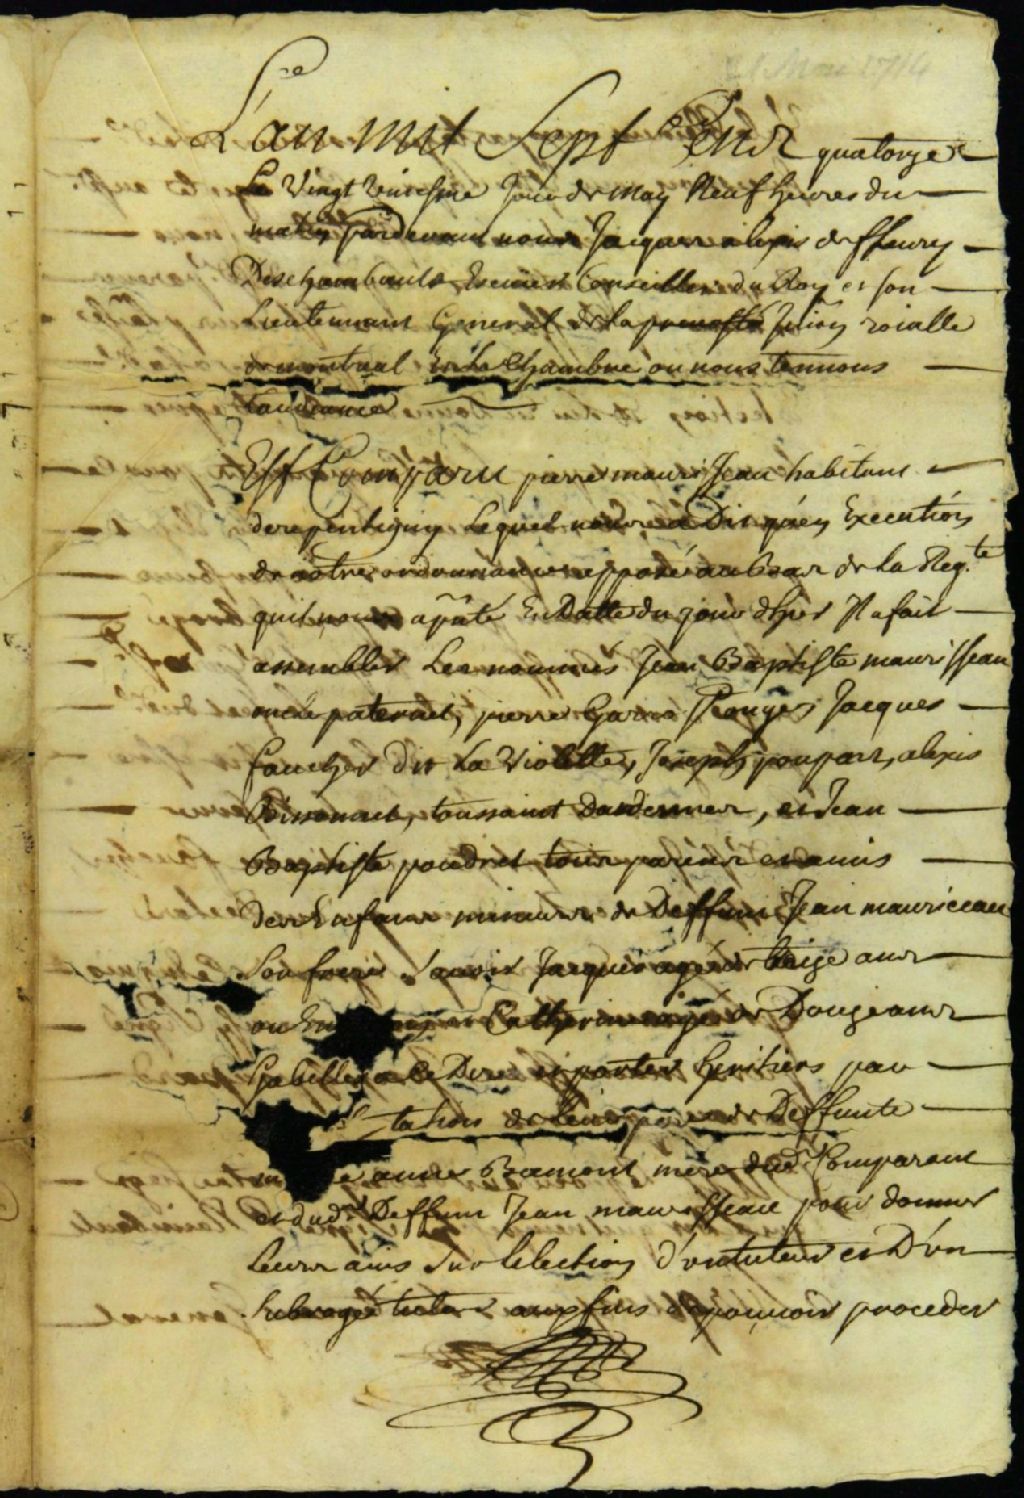 21 Mai 1714
L'an mil Sept Cens quatorze
Le Vingt Uniesme Jour de may Neuf heures du
matin pardevant nous Jacques alexis de ffleury
Deschambault Escuier Conseiller du Roy et son
Lieutennant General de la Jurion roialle
de montreal En la Chambre ou nous tennons
Laudiance
Est Comparu pierre maurisseau habitant
de repentigny Lequel nous a Dit quen Execution
de notre ordonnance apposé au bas de la Reqte
quil nous a pnté En Datte du jour dhier Il a fait
assembler Les nommés Jean Baptiste maurisseau
oncle paternel, pierre Jacques
faucher Dit La Violette, Joseph poupart, alexis
Bissonnet, toussaint Dardennes, et Jean
Baptiste poudret tous parens et amis
des Enfans mineurs de Deffunt Jean mauriceau
Son frere Savoir Jacques agé de treize ans
ou En Catherine agé de Douze ans
habilles a Se Dire et porter heritiers par
tation de leur pere de Deffunte
anne Beamont mere dud Comparant
et dud Deffunt Jean maurisseau pour donner
Leurs avis Sur lelection d'un tuteur et D'un
Subrogé tuteur aux fins de pouvoir proceder